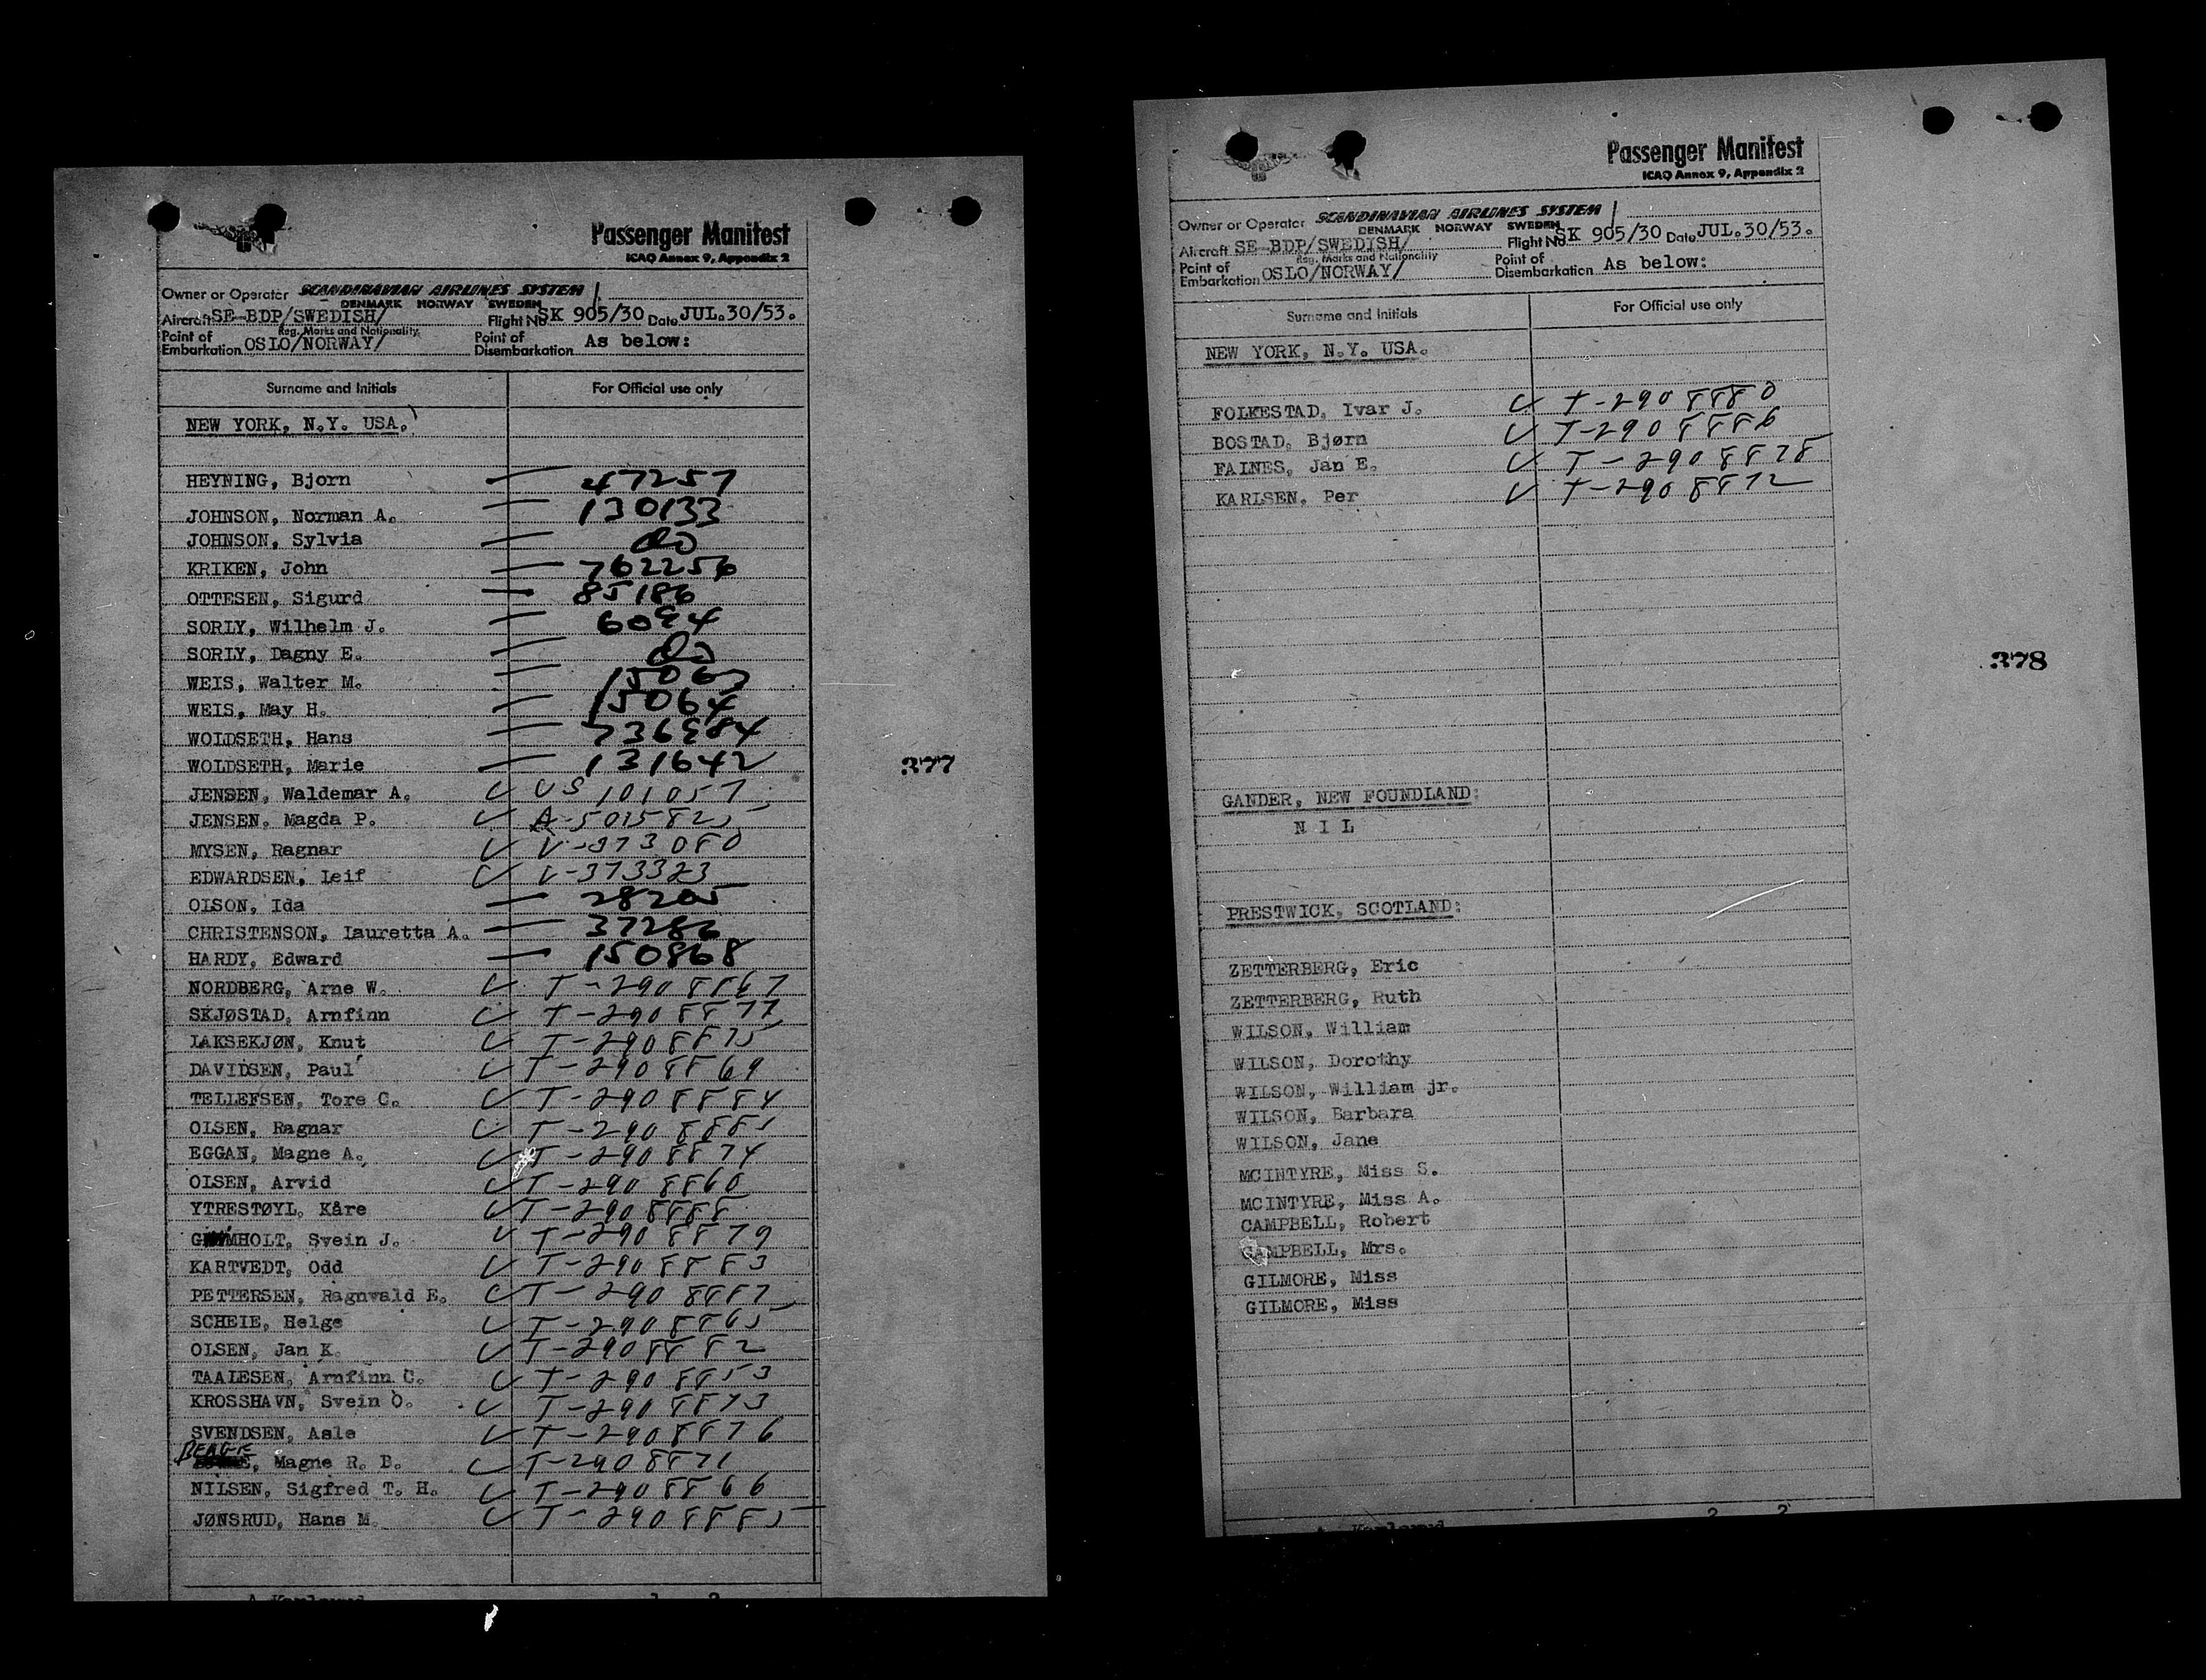 Passenger Manifest
ICAO Annex 9, Appendix 2
Owner or Operator SCANDINAVIAN AIRLINES SYSTEM
DENMARK NORWAY SWEDEN
Aircraft SE-BDP/SWEDISH/ Flight No. SK 905/30 Date JUL.30/53.
Reg. Marks and Nationality
Point of Embarkation OSLO/NORWAY/ Point of Disembarkation As below:
Surname and Initials For Official use only
NEW YORK, N.Y. USA.
HEYNING, Bjorn — 47257
JOHNSON, Norman A. — 130133
JOHNSON, Sylvia — do
KRIKEN, John — 762256
OTTESEN, Sigurd — 85186
SORLY, Wilhelm J. —
SORLY, Dagny E. — do
WEIS, Walter M. — 15063
WEIS, May H. — 15064
WOLDSETH, Hans —
WOLDSETH, Marie — 131642
JENSEN, Waldemar A. ✓ US 101057
JENSEN, Magda P. ✓ A-5015825
MYSEN, Ragnar ✓ V-373080
EDWARDSEN, Leif ✓ V-373323
OLSON, Ida — 28205
CHRISTENSON, Lauretta A. — 37286
HARDY, Edward — 150868
NORDBERG, Arne W. ✓ T-2908867
SKJØSTAD, Arnfinn ✓ T-2908877
LAKSEKJØN, Knut ✓ T-2908875
DAVIDSEN, Paul ✓ T-2908869
TELLEFSEN, Tore C. ✓ T-2908884
OLSEN, Ragnar ✓ T-2908881
EGGAN, Magne A. ✓ T-2908874
OLSEN, Arvid ✓ T-2908860
YTRESTØYL, Kåre ✓ T-2908888
HOLT, Svein J. ✓ T-2908879
KARTVEDT, Odd ✓ T-2908883
PETTERSEN, Ragnvald E. ✓ T-2908887
SCHEIE, Helge ✓ T-2908865
OLSEN, Jan K. ✓ T-2908882
TAALESEN, Arnfinn C. ✓ T-2908853
KROSSHAVN, Svein O. ✓ T-2908873
SVENDSEN, Asle ✓ T-2908876
BERGE, Magne R. B. ✓ T-2908871
NILSEN, Sigfred T. H. ✓ T-2908866
JØNSRUD, Hans M. ✓ T-2908885
377
Passenger Manifest
ICAO Annex 9, Appendix 2
Owner or Operator SCANDINAVIAN AIRLINES SYSTEM
DENMARK NORWAY SWEDEN
Aircraft SE-BDP/SWEDISH/ Flight No. SK 905/30 Date JUL.30/53.
Reg. Marks and Nationality
Point of Embarkation OSLO/NORWAY/ Point of Disembarkation As below:
Surname and Initials For Official use only
NEW YORK, N.Y. USA.
FOLKESTAD, Ivar J. ✓ T-2908880
BOSTAD, Bjørn ✓ T-2908886
FALNES, Jan E. ✓ T-2908878
KARLSEN, Per ✓ T-2908872
378
GANDER, NEW FOUNDLAND:
N I L
PRESTWICK, SCOTLAND:
ZETTERBERG, Eric
ZETTERBERG, Ruth
WILSON, William
WILSON, Dorothy
WILSON, William jr.
WILSON, Barbara
WILSON, Jane
MCINTYRE, Miss S.
MCINTYRE, Miss A.
CAMPBELL, Robert
CAMPBELL, Mrs.
GILMORE, Miss
GILMORE, Miss